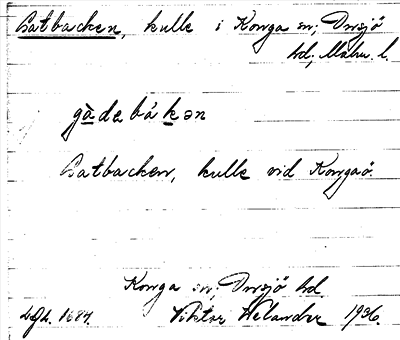 Gatbacken, kulle i Konga sn; Onsjö
hd; Malm. l.
gàdabákən
Gatbacken, kulle vid Kongaö.
Konga sn, Onsjö hd.
Viktor Welander 1936.